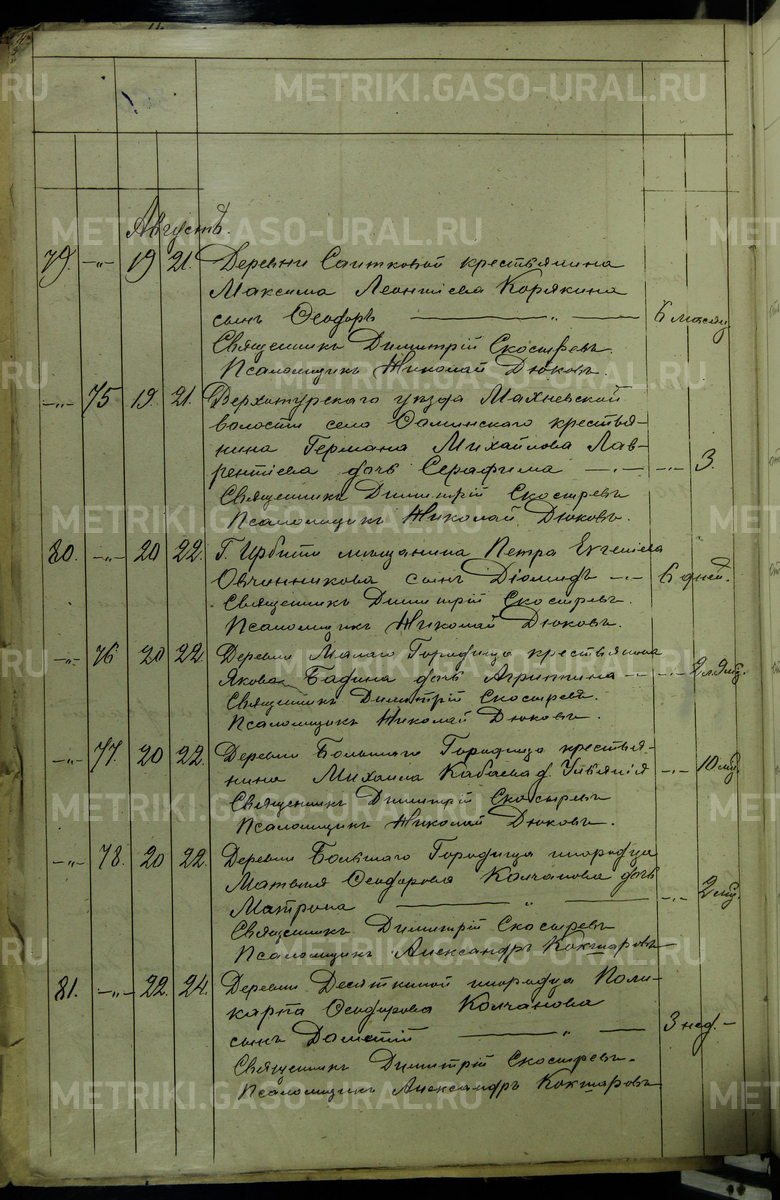 METRIKI.GASO-URAL.RU
Августъ.
79. -"- 19 21. Деревни Саитковой крестьянина
Максима Леонтіева Корякина
сынъ Ѳеодоръ — " — 6 месяц
Священникъ Димитрій Скосыревъ.
Псаломщикъ Николай Дюковъ.
-"- 75 19 21. Верхотурскаго уѣзда Махневской
волости села крестья-
нина Германа Михайлова Лав-
рентіева дочь Серафима -"- -"- 3.
Священникъ Димитрій Скосыревъ
Псаломщикъ Николай Дюковъ.
80. -"- 20 22. Г. Ирбити мѣщанина Петра Евгеніева
Овчинникова сынъ Діомидъ -"- 6 дней.
Священникъ Димитрій Скосыревъ.
Псаломщикъ Николай Дюковъ.
-"- 76 20 22. Деревни Малаго Городища крестьянина
Якова Бабина дочь Агриппина -"- 2 л
Священникъ Димитрій Скосыревъ.
Псаломщикъ Николай Дюковъ.
-"- 77. 20 22. Деревни Большаго Городища крестья-
нина Михаила Кабаева д. -"- 10 мц.
Священникъ Димитрій Скосыревъ
Псаломщикъ Николай Дюковъ.
-"- 78. 20 22. Деревни Большаго Городища инородца
Матвѣя Ѳеодорова Колчанова дочь
Матрона — " — -"- 2 мц.
Священникъ Димитрій Скосыревъ
Псаломщикъ Александръ Кокшаровъ
81. -"- 22. 24. Деревни Десяткиной инородца Поли-
карпа Ѳеодорова Колчанова
сынъ Дометій — " — 3 нед. -
Священникъ Димитрій Скосыревъ.
Псаломщикъ Александръ Кокшаровъ